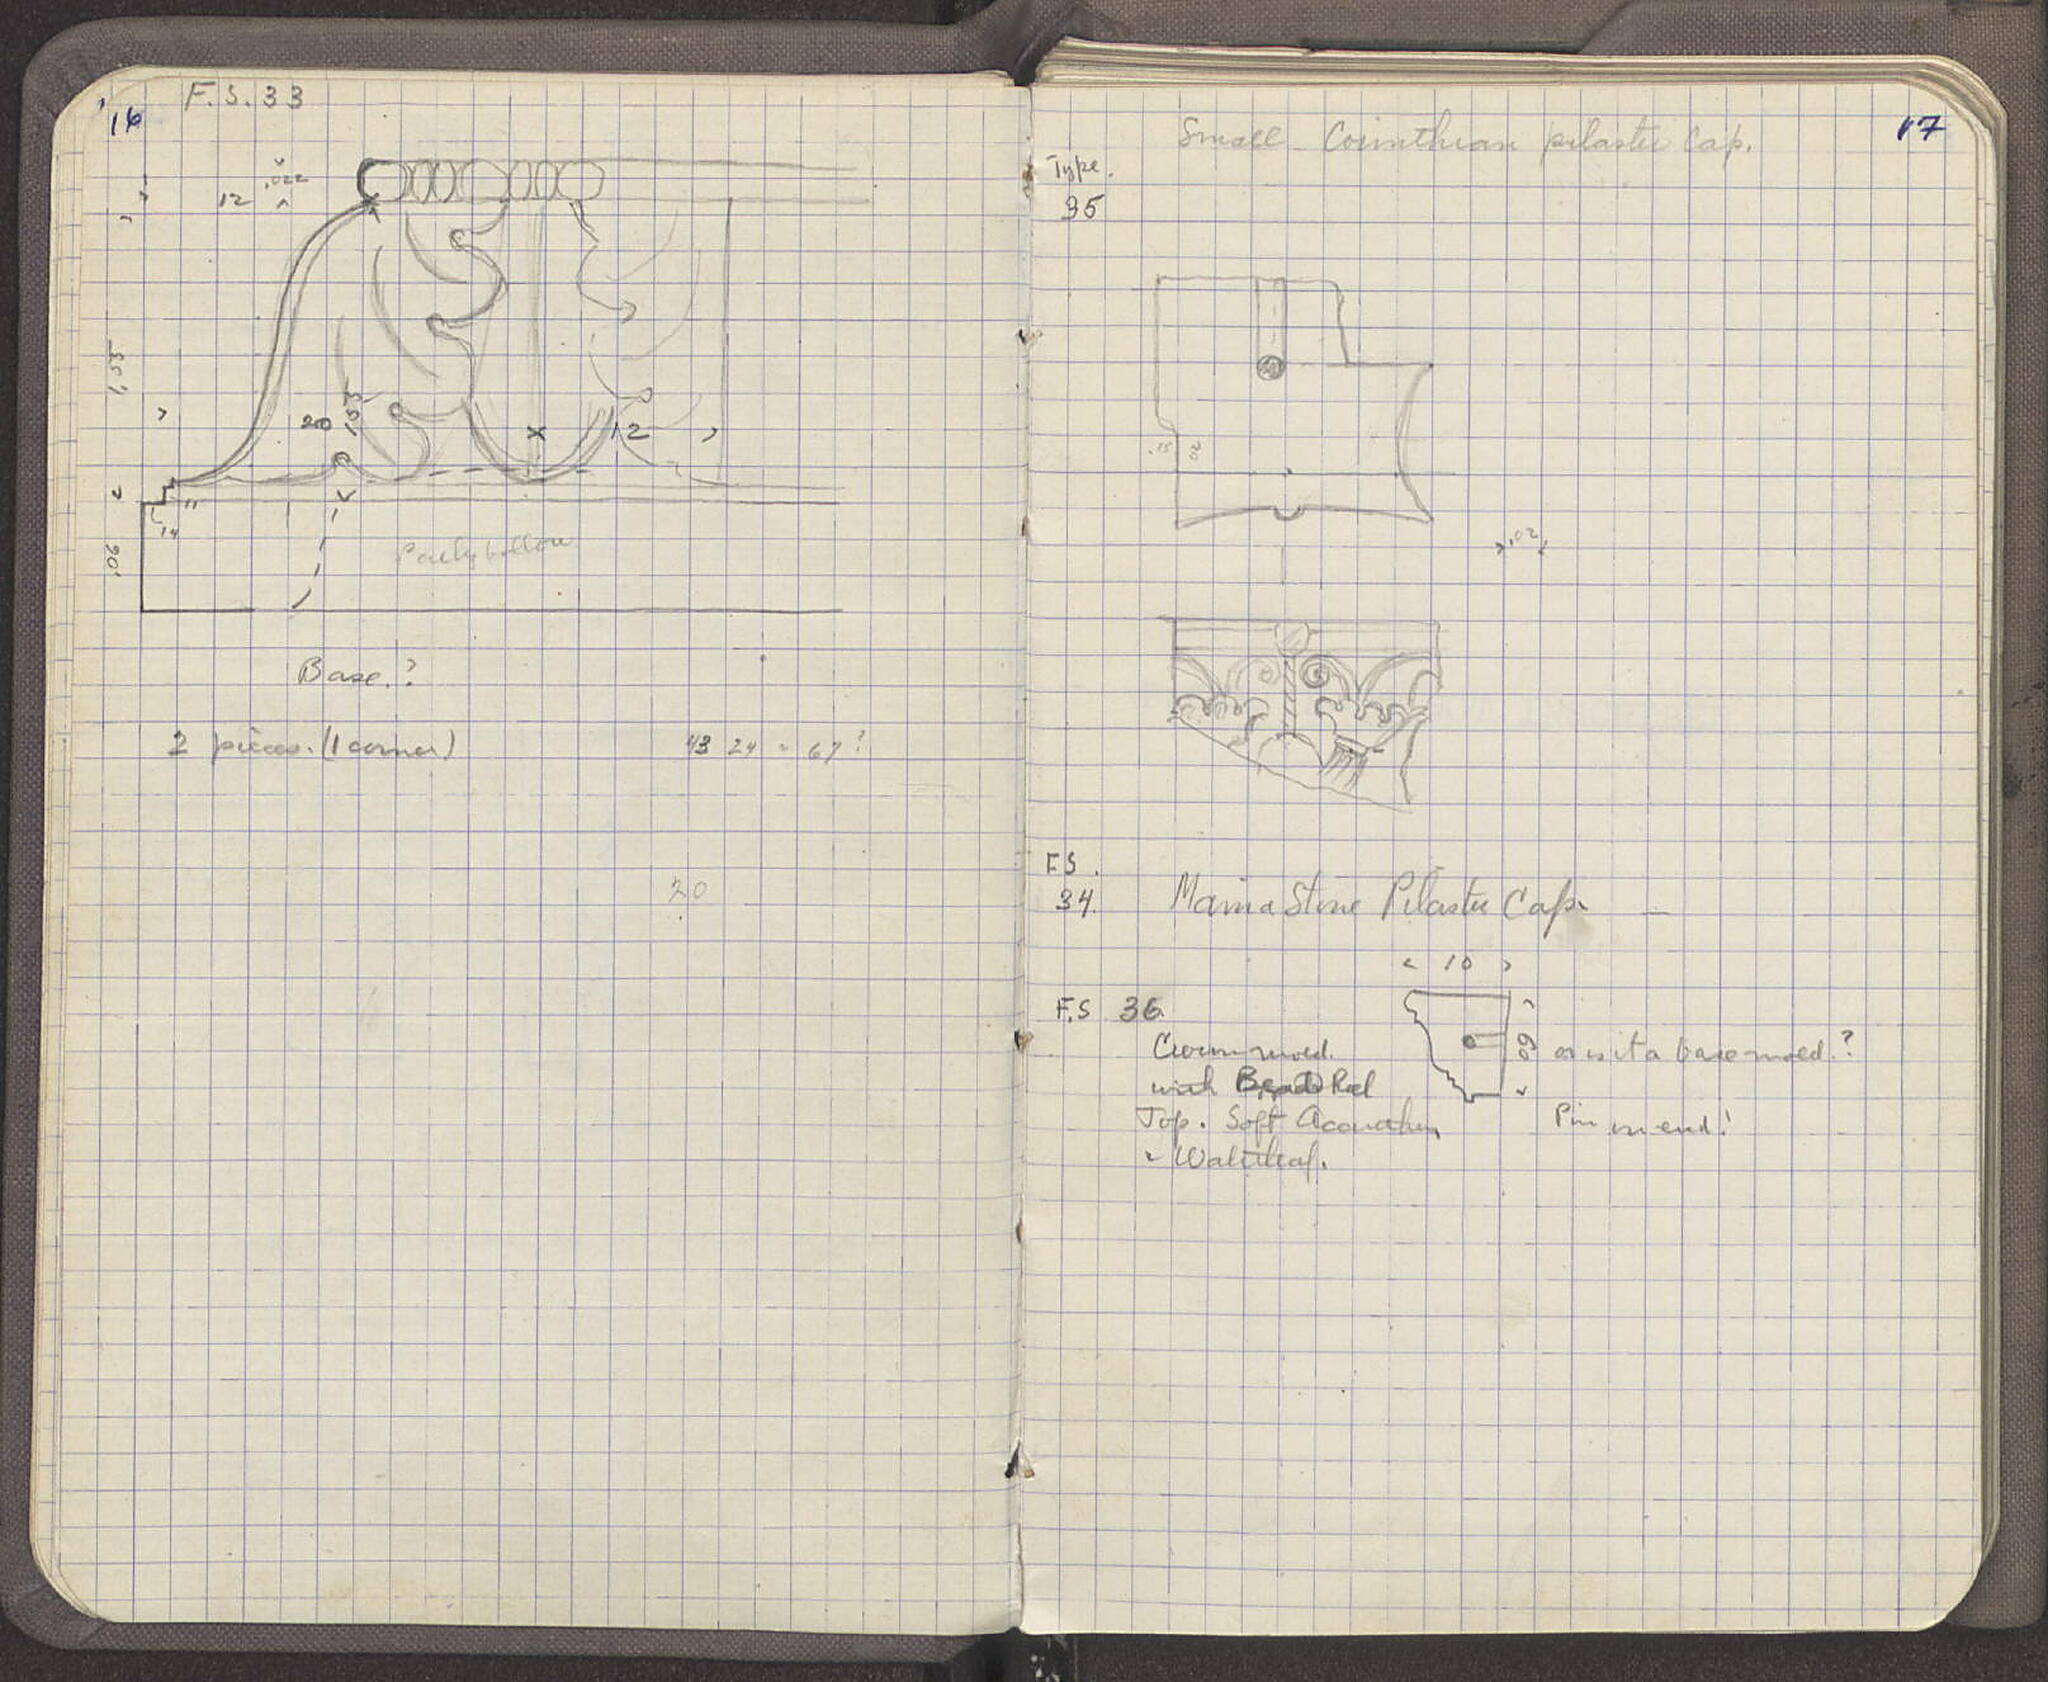 16
F.S. 33
12 .022
1,55
20 155
12
11
14
.06
Base.?
2 pieces. (1 corner)
43 24 = 67?
20
17
Small Corinthian pilaster Cap.
Type.
35
.15
.02
F.S.
34. Stone Pilaster Cap.
10
F.S 36.
Crown mold. 09 or is it a base mold.?
with Bead Reel
Top. Soft Acanthus Pin in end!
Waterleaf.